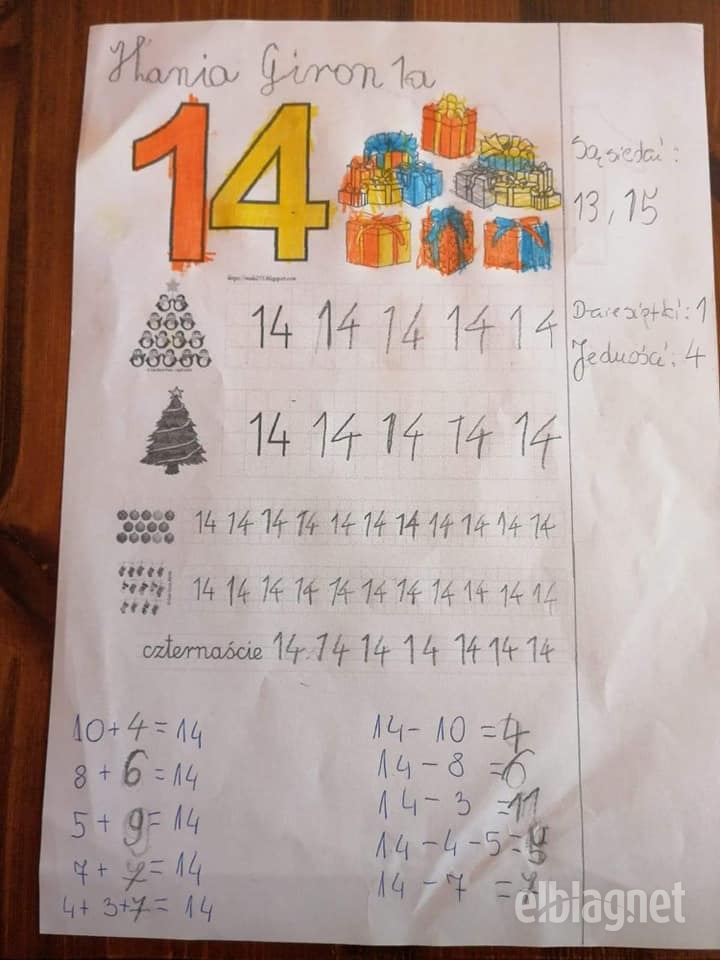 Hania Giron 1a
14
Sąsiedzi:
13, 15
Dziesiątki: 1
Jedności: 4
14 14 14 14 14
14 14 14 14 14
14 14 14 14 14 14 14 14 14 14 14
14 14 14 14 14 14 14 14 14 14 14
czternaście 14 14 14 14 14 14 14
10 + 4 = 14
8 + 6 = 14
5 + 9 = 14
7 + 7 = 14
4 + 3 + 7 = 14
14 - 10 = 4
14 - 8 = 6
14 - 3 = 11
14 - 4 - 5 = 5
14 - 7 = 7
elblag.net